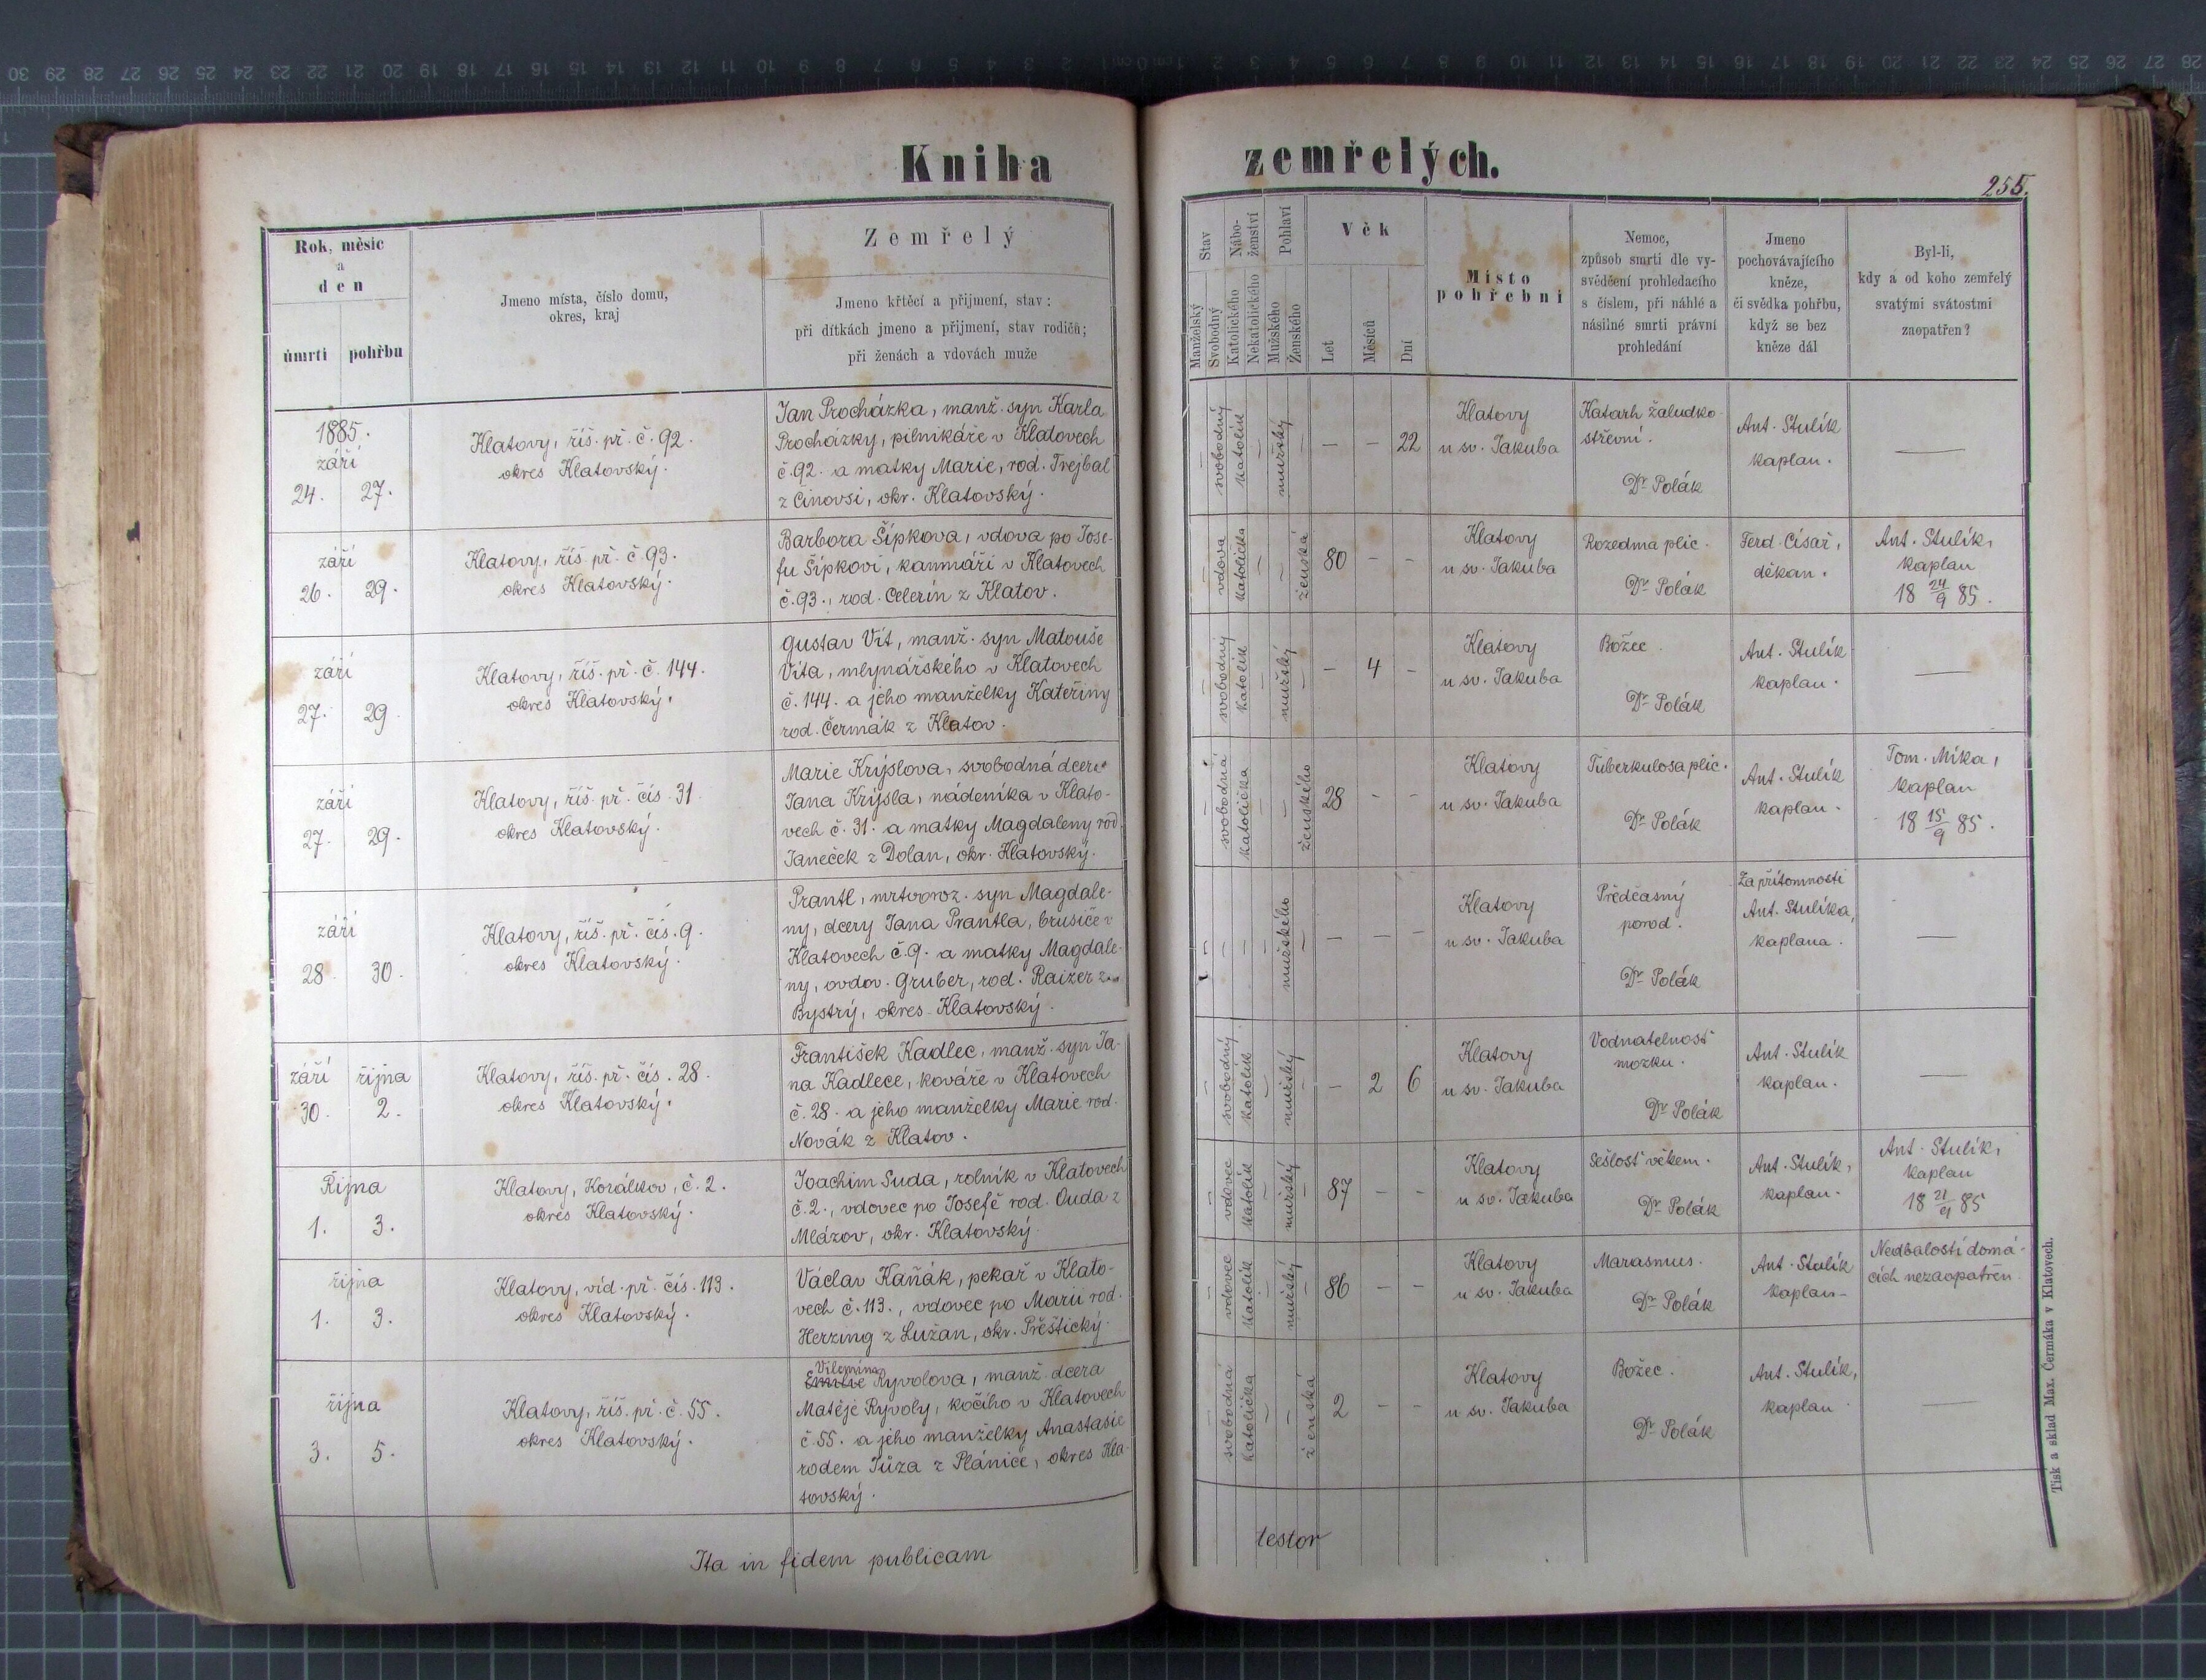 Kniha zemřelých.
255.
Rok, měsíc
a
den
úmrtí pohřbu
Jmeno místa, číslo domu,
okres, kraj
Zemřelý
Jmeno křtěcí a přijmení, stav;
při dítkách jmeno a přijmení, stav rodičů;
při ženách a vdovách muže
Stav
Manželský
Svobodný
Nábo-
ženství
Katolického
Nekatolického
Pohlaví
Mužského
Ženského
Věk
Let
Měsíců
Dní
Místo
pohřební
Nemoc,
způsob smrti dle vy-
svědčení prohledacího
s číslem, při náhlé a
násilné smrti právní
prohledání
Jmeno
pochovávajícího
kněze,
či svědka pohřbu,
když se bez
kněze dál
Byl-li,
kdy a od koho zemřelý
svatými svátostmi
zaopatřen?
1885.
září
24. 27.
Klatovy, říš. př. č. 92.
okres Klatovský.
Jan Procházka, manž. syn Karla
Procházky, pilnikáře v Klatovech
č. 92. a matky Marie, rod. Trejbal
z Činovsi, okr. Klatovský.
svobodný
katolík
mužský
– – 22
Klatovy
u sv. Jakuba
Katarh žaludko
střevní.
Dr Polák
Ant. Stulík
kaplan.
—
září
26. 29.
Klatovy, říš. př. č. 93.
okres Klatovský.
Barbora Šípkova, vdova po Jose-
fu Šípkovi, kanmáři v Klatovech
č. 93., rod. Celerin z Klatov.
vdova
katolička
ženská
80 – –
Klatovy
u sv. Jakuba
Rozedma plic.
Dr Polák
Ferd. Císař,
děkan.
Ant. Stulík,
kaplan
18 24/9 85.
září
27. 29
Klatovy, říš. př. č. 144.
okres Klatovský.
Gustav Vít, manž. syn Matouše
Víta, mlynářského v Klatovech
č. 144. a jeho manželky Kateřiny
rod. Čermák z Klatov.
svobodný
katolík
mužský
– 4 –
Klatovy
u sv. Jakuba
Božec.
Dr Polák
Ant. Stulík
kaplan.
—
září
27. 29.
Klatovy, říš. př. čís. 31
okres Klatovský.
Marie Krýslova, svobodná dcera
Jana Krýsla, nádeníka v Klato-
vech č. 31. a matky Magdaleny rod.
Janeček z Dolan, okr. Klatovský.
svobodná
katolička
ženského
28 – –
Klatovy
u sv. Jakuba
Tuberkulosa plic.
Dr Polák
Ant. Stulík
kaplan.
Tom. Míka,
kaplan
18 15/9 85.
září
28. 30.
Klatovy, říš. př. čís. 9.
okres Klatovský.
Prantl, mrtvoroz. syn Magdale-
ny, dcery Jana Prantla, brusiče v
Klatovech č. 9. a matky Magdale-
ny, ovdov. Gruber, rod. Raizer z
Bystrý, okres Klatovský.
mužského
– – –
Klatovy
u sv. Jakuba
Předčasný
porod.
Dr Polák
Za přítomnosti
Ant. Stulíka,
kaplana.
—
září října
30. 2.
Klatovy, říš. př. čís. 28.
okres Klatovský.
František Kadlec, manž. syn Ja-
na Kadlece, kováře v Klatovech
č. 28. a jeho manželky Marie rod.
Novák z Klatov.
svobodný
katolík
mužský
– 2 6
Klatovy
u sv. Jakuba
Vodnatelnost
mozku.
Dr Polák
Ant. Stulík
kaplan.
—
Října
1. 3.
Klatovy, Korálkov, č. 2.
okres Klatovský.
Joachim Suda, rolník v Klatovech
č. 2., vdovec po Josefě rod. Ouda z
Mlázov, okr. Klatovský
vdovec
katolík
mužský
87 – –
Klatovy
u sv. Jakuba
Sešlost věkem.
Dr Polák
Ant. Stulík,
kaplan.
Ant. Stulík,
kaplan
18 21/9 85
října
1. 3.
Klatovy, víd. př. čís. 113.
okres Klatovský.
Václav Kaňák, pekař v Klato-
vech č. 113., vdovec po Marii rod.
Herzing z Lužan, okr. Přeštický.
vdovec
katolík
mužský
86 – –
Klatovy
u sv. Jakuba
Marasmus.
Dr Polák
Ant. Stulík
kaplan
Nedbalostí domá-
cích nezaopatřen.
října
3. 5.
Klatovy, říš. př. č. 55.
okres Klatovský.
Vilemína
Emilie Ryvolova, manž. dcera
Matěje Ryvoly, kočího v Klatovech
č. 55. a jeho manželky Anastasie
rodem Jůza z Plánice, okres Kla-
tovský.
svobodná
katolička
ženská
2 – –
Klatovy
u sv. Jakuba
Božec.
Dr Polák
Ant. Stulík,
kaplan
—
Ita in fidem publicam testor
Tisk a sklad Max. Čermáka v Klatovech.